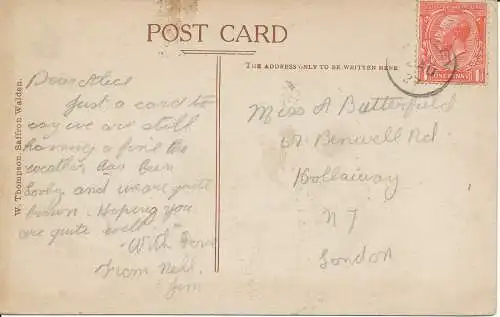 POST CARD
THE ADDRESS ONLY TO BE WRITTEN HERE
W. Thompson, Saffron Walden.
Dear Alice
Just a card to
say we are still
having a fine the
weather has been
lovly and we are quite
brown. Hoping you
are quite well
With Love
From Nell
Jim
Miss A Butterfield
67 Benwell Rd
Hollaway
N 7
London
ONE PENNY